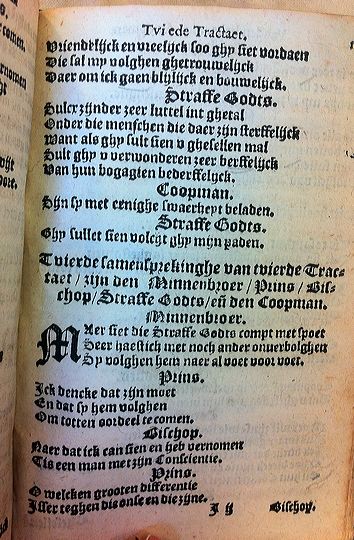 Tvi ede Tractaet.
Vriendelijck en vreelijck soo ghy siet voordaen
Die sal my volghen ghetrouwelijck
Daer om ick gaen blijlijck en bouwelijck.
Straffe Godts.
Sulcx zijnder zeer luttel int ghetal
Onder die menschen die daer zijn sterffelijck
Want als ghy sult sien v ghesellen mal
Sult ghy v verwonderen zeer derffelijck
Van hun bogagien bederffelijck.
Coopman.
Zijn sy met eenighe swaerheyt beladen.
Straffe Godts.
Ghy sullet sien volcht ghy mijn paden.
Tvierde samensprekinghe van tvierde Trac-
taet / zijn den Minnenbroer / Prins / Bis-
schop / Straffe Godts / eñ den Coopman.
Minnenbroer.
MAer siet die Straffe Godts compt met spoet
Seer haestich met noch ander onverbolghen
Sy volghen hem naer al voet voor voet.
Prins.
Ick dencke dat zijn moet
En dat sy hem volghen
Om totten oordeel te comen.
Bischop.
Naer dat ick can sien en heb vernomen
Tis een man met zijn Conscientie.
Prins.
O welcken grooten differentie
Isser teghen dis onse en die zijne.
I ij Bischop.